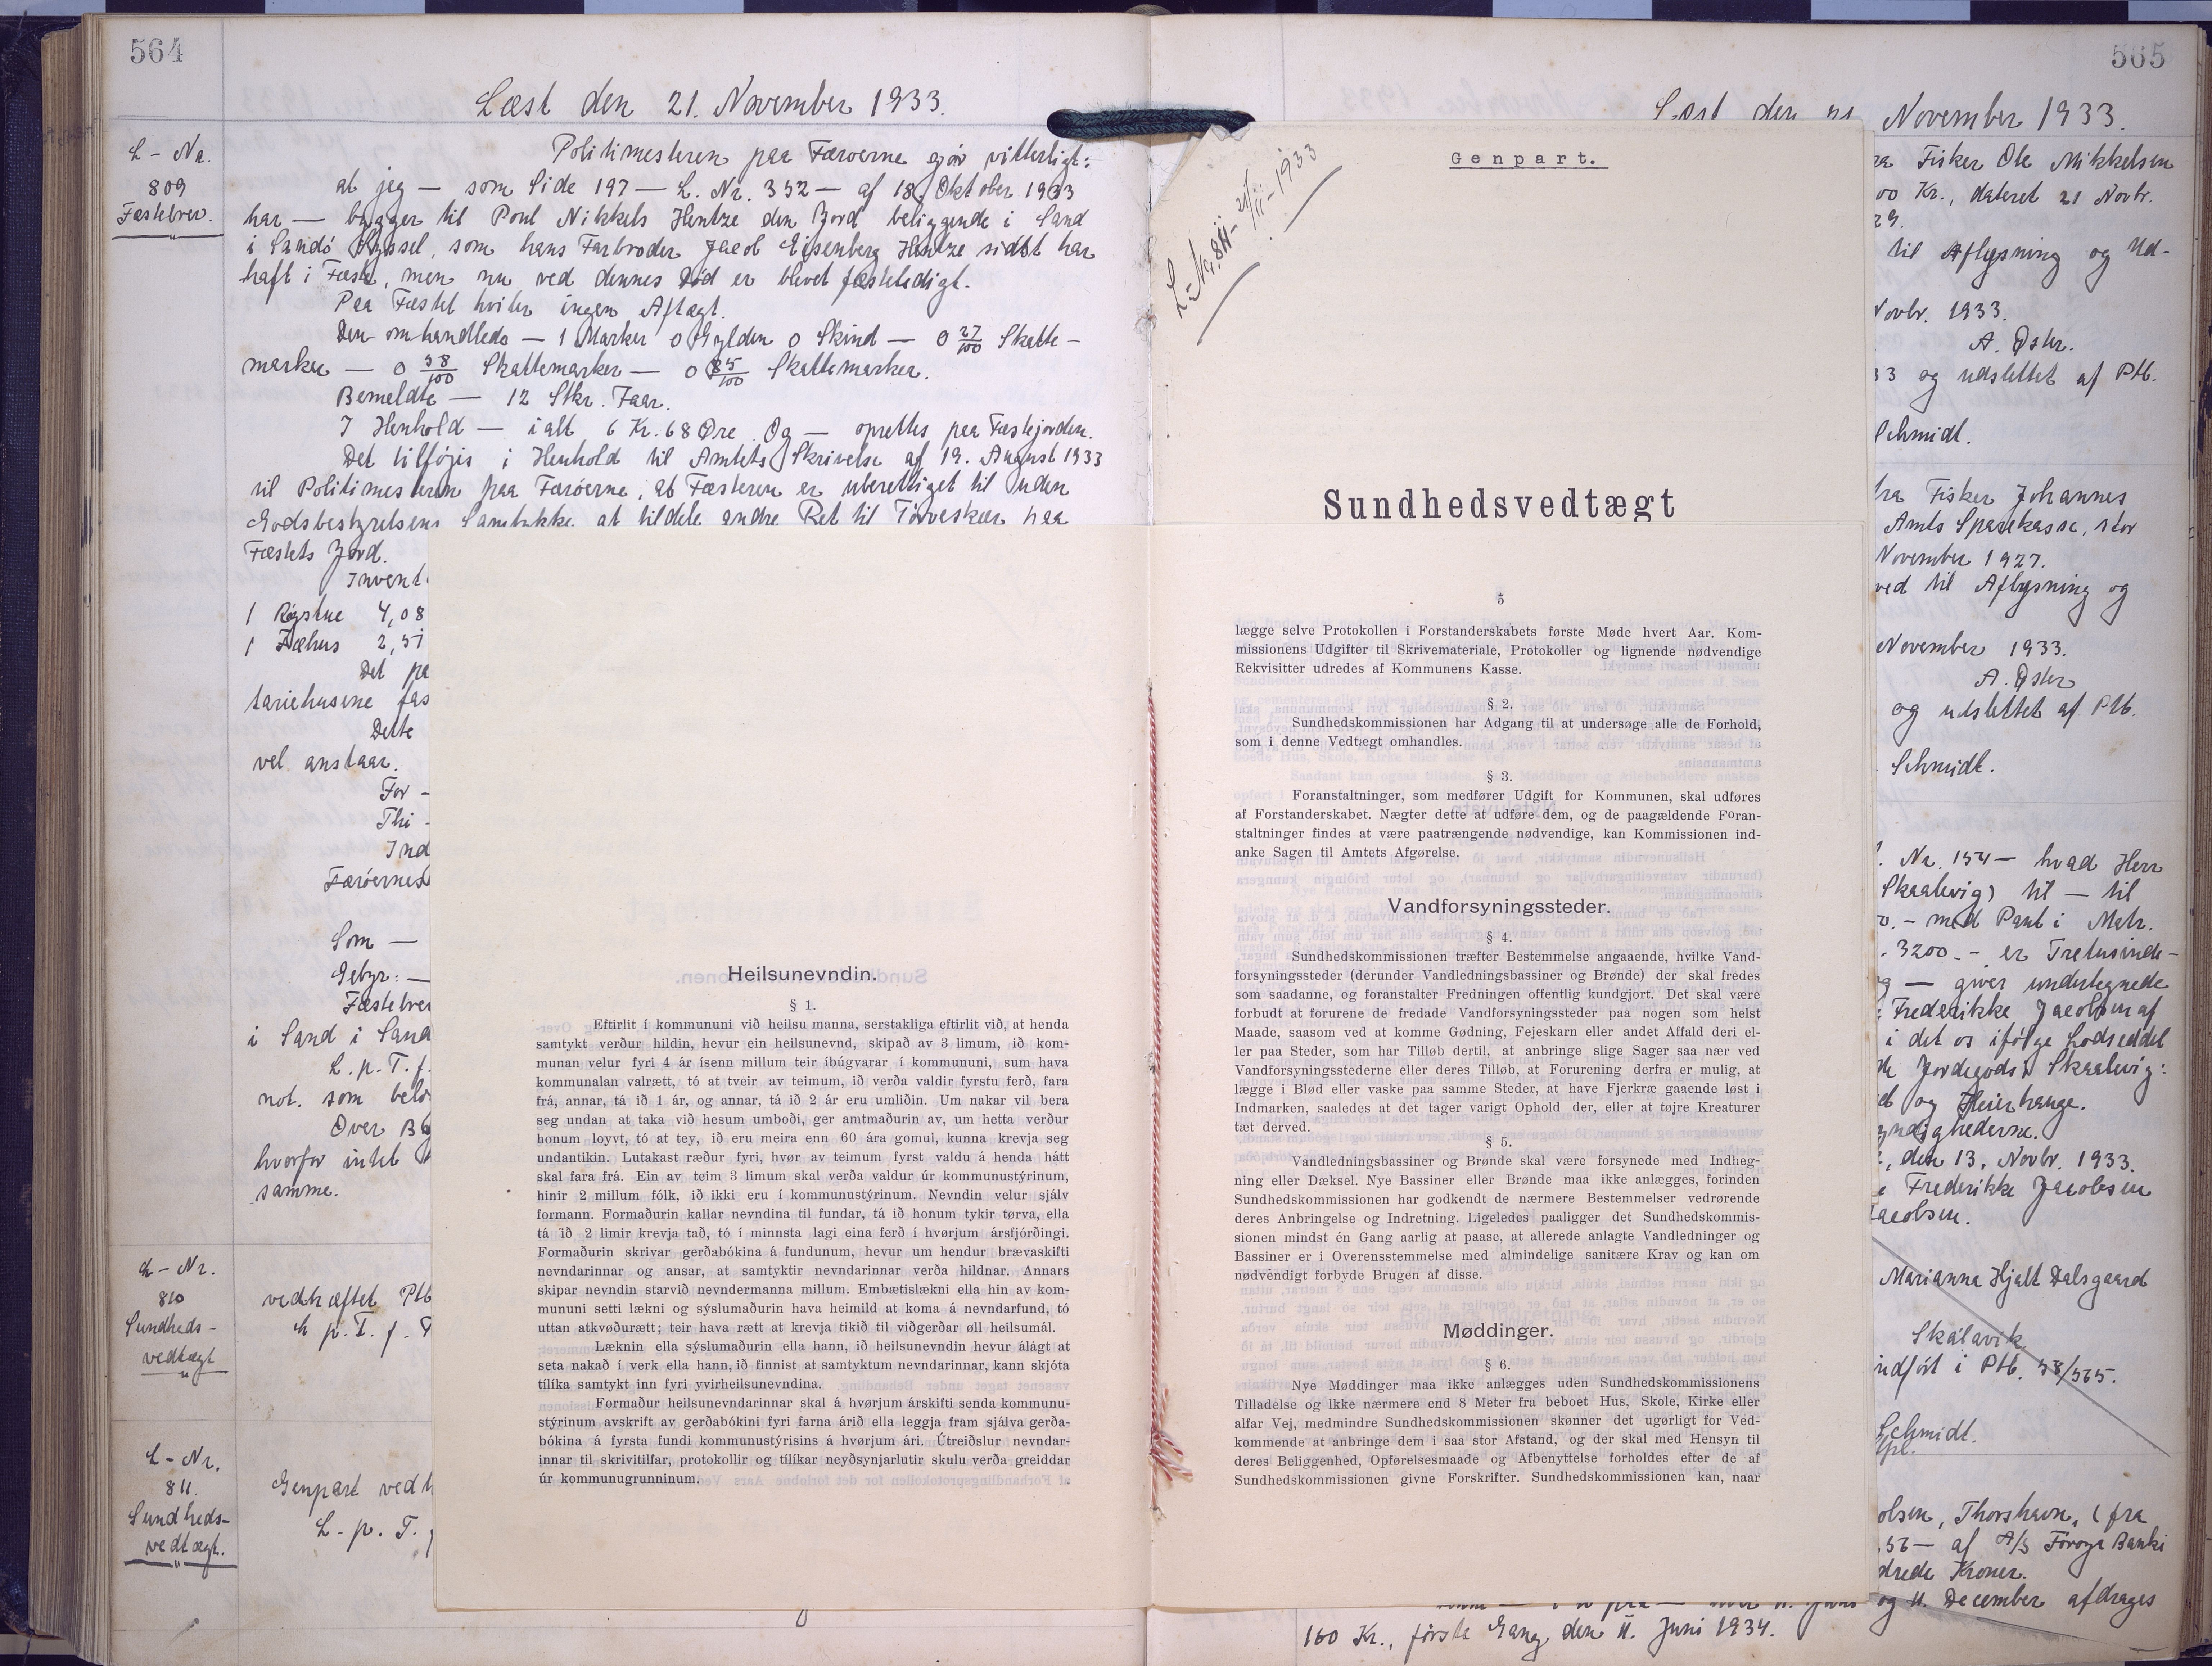 564
Læst den 21. November 1933.
L - Nr.
809
Fæstebrev.
Politimesteren paa Færøerne gjør vitterligt:
at jeg — som Side 197 — L. Nr. 352 — af 18. Oktober 1933
har — bygger til Poul Nikkels Hentze den Jord beliggende i Sand
i Sandø Syssel, som hans Farbroder Jacob Eisenberg Hentze sidst har
haft i Fæste, men nu ved dennes Død er blevet fæsteledigt.
Paa Fæstet hviler ingen Aftægt.
Den omhandlede — 1 Marker 0 Gylden 0 Skind — 0 27/100 Skatte-
marker — 0 58/100 Skattemarker — 0 85/100 Skattemarker.
Bemeldte — 12 Stkr. Faar.
I Henhold — ialt 6 Kr. 68 Øre. Og — oprettes paa Fæstejorden.
Det tilføjes i Henhold til Amtets Skrivelse af 19. August 1933
til Politimesteren paa Færøerne, at Fæsteren er uberettiget til uden
Godsbestyrelsens Samtykke at tildele andre Ret til Tørveskær paa
Fæstets Jord.
Invent
1 Røgstue 4,08
1 Fæhus 2,51
Det pa
tariehusene fas
Dette
vel anstaar.
For -
Thi -
Ind
Færøernes
Som —
Gebyr: —
Fæstebrev
i Sand i Sand
L. p. T. f.
not. som belø
Over Bø
hvorfor intet
samme.
L - Nr.
810
Sundheds-
vedtægt
vedhæftet Ptb
L p. T. f.
L - Nr.
811.
Sundheds-
vedtægt.
Genpart vedh
L. p. T.
Heilsunevndin.
§ 1.
Eftirlit í kommununi við heilsu manna, serstakliga eftirlit við, at henda
samtykt verður hildin, hevur ein heilsunevnd, skipað av 3 limum, ið kom-
munan velur fyri 4 ár ísenn millum teir íbúgvarar í kommununi, sum hava
kommunalan valrætt, tó at tveir av teimum, ið verða valdir fyrstu ferð, fara
frá, annar, tá ið 1 ár, og annar, tá ið 2 ár eru umliðin. Um nakar vil bera
seg undan at taka við hesum umboði, ger amtmaðurin av, um hetta verður
honum loyvt, tó at tey, ið eru meira enn 60 ára gomul, kunna krevja seg
undantikin. Lutakast ræður fyri, hvør av teimum fyrst valdu á henda hátt
skal fara frá. Ein av teim 3 limum skal verða valdur úr kommunustýrinum,
hinir 2 millum fólk, ið ikki eru í kommunustýrinum. Nevndin velur sjálv
formann. Formaðurin kallar nevndina til fundar, tá ið honum tykir tørva, ella
tá ið 2 limir krevja tað, tó í minnsta lagi eina ferð í hvørjum ársfjórðingi.
Formaðurin skrivar gerðabókina á fundunum, hevur um hendur brævaskifti
nevndarinnar og ansar, at samtyktir nevndarinnar verða hildnar. Annars
skipar nevndin starvið nevndermanna millum. Embætislækni ella hin av kom-
mununi setti lækni og sýslumaðurin hava heimild at koma á nevndarfund, tó
uttan atkvøðurætt; teir hava rætt at krevja tikið til viðgerðar øll heilsumál.
Læknin ella sýslumaðurin ella hann, ið heilsunevndin hevur álágt at
seta nakað í verk ella hann, ið finnist at samtyktum nevndarinnar, kann skjóta
tílíka samtykt inn fyri yvirheilsunevndina.
Formaður heilsunevndarinnar skal á hvørjum árskifti senda kommunu-
stýrinum avskrift av gerðabókini fyri farna árið ella leggja fram sjálva gerða-
bókina á fyrsta fundi kommunustýrisins á hvørjum ári. Útreiðslur nevndar-
innar til skrivitilfar, protokollir og tílíkar neyðsynjarlutir skulu verða greiddar
úr kommunugrunninum.
Genpart.
L-Nr. 811 - 21/11-1933
Sundhedsvedtægt
5
lægge selve Protokollen i Forstanderskabets første Møde hvert Aar. Kom-
missionens Udgifter til Skrivemateriale, Protokoller og lignende nødvendige
Rekvisitter udredes af Kommunens Kasse.
§ 2.
Sundhedskommissionen har Adgang til at undersøge alle de Forhold,
som i denne Vedtægt omhandles.
§ 3.
Foranstaltninger, som medfører Udgift for Kommunen, skal udføres
af Forstanderskabet. Nægter dette at udføre dem, og de paagældende Foran-
staltninger findes at være paatrængende nødvendige, kan Kommissionen ind-
anke Sagen til Amtets Afgørelse.
Vandforsyningssteder.
§ 4.
Sundhedskommissionen træfter Bestemmelse angaaende, hvilke Vand-
forsyningssteder (derunder Vandledningsbassiner og Brønde) der skal fredes
som saadanne, og foranstalter Fredningen offentlig kundgjort. Det skal være
forbudt at forurene de fredade Vandforsyningssteder paa nogen som helst
Maade, saasom ved at komme Gødning, Fejeskarn eller andet Affald deri el-
ler paa Steder, som har Tilløb dertil, at anbringe slige Sager saa nær ved
Vandforsyningsstederne eller deres Tilløb, at Forurening derfra er mulig, at
lægge i Blød eller vaske paa samme Steder, at have Fjerkræ gaaende løst i
Indmarken, saaledes at det tager varigt Ophold der, eller at tøjre Kreaturer
tæt derved.
§ 5.
Vandledningsbassiner og Brønde skal være forsynede med Indheg-
ning eller Dæksel. Nye Bassiner eller Brønde maa ikke anlægges, forinden
Sundhedskommissionen har godkendt de nærmere Bestemmelser vedrørende
deres Anbringelse og Indretning. Ligeledes paaligger det Sundhedskommis-
sionen mindst én Gang aarlig at paase, at allerede anlagte Vandledninger og
Bassiner er i Overensstemmelse med almindelige sanitære Krav og kan om
nødvendigt forbyde Brugen af disse.
Møddinger.
§ 6.
Nye Møddinger maa ikke anlægges uden Sundhedskommissionens
Tilladelse og ikke nærmere end 8 Meter fra beboet Hus, Skole, Kirke eller
alfar Vej, medmindre Sundhedskommissionen skønner det ugørligt for Ved-
kommende at anbringe dem i saa stor Afstand, og der skal med Hensyn til
deres Beliggenhed, Opførelsesmaade og Afbenyttelse forholdes efter de af
Sundhedskommissionen givne Forskrifter. Sundhedskommissionen kan, naar
565
Læst den 21 November 1933.
ra Fisker Ole Mikkelsen
00 Kr., dateret 21 Novbr.
29.
til Aflysning og Ud-
Novbr. 1933.
A. Øster.
33 og udslettet af Ptb.
Schmidt.
fra Fisker Johannes
Amts Sparekasse, stor
November 1927.
ved til Aflysning og
November 1933.
A. Øster
og udslettet af Ptb.
Schmidt.
. Nr. 154 — hvad Herr
Skaalevig) til — til
- med Pant i Matr.
. 3200.- er Tretusinde-
og — giver undertegnede
Frederikke Jacobsen af
i det os ifølge Lodseddel
de Jordegods i Skaalevig:
et og Heiarhange.
yndighederne.
, den 13. Novbr. 1933.
e Frederikke Jacobsen
Jacobsen.
Marianna Hjalt Dalsgaard
Skálavik
indført i Ptb. 58/565.
Schmidt.
olsen, Thorshavn, (fra
56 — af A/S Føroya Banki
drede Kroner.
og 11. December afdrages
160 Kr., første Gang den 11. Juni 1934.